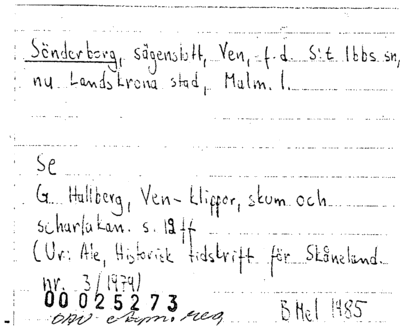 Sönderborg, sägenslott, Ven, f.d. S:t Ibbs sn,
nu Landskrona stad, Malm. l.
Se
G Hallberg, Ven-Klippor, skum och
scharlakan. s. 12 ff
(Ur: Ale, Historisk tidskrift för Skåneland.
nr. 3/1979)
00025273
B Mel 1985